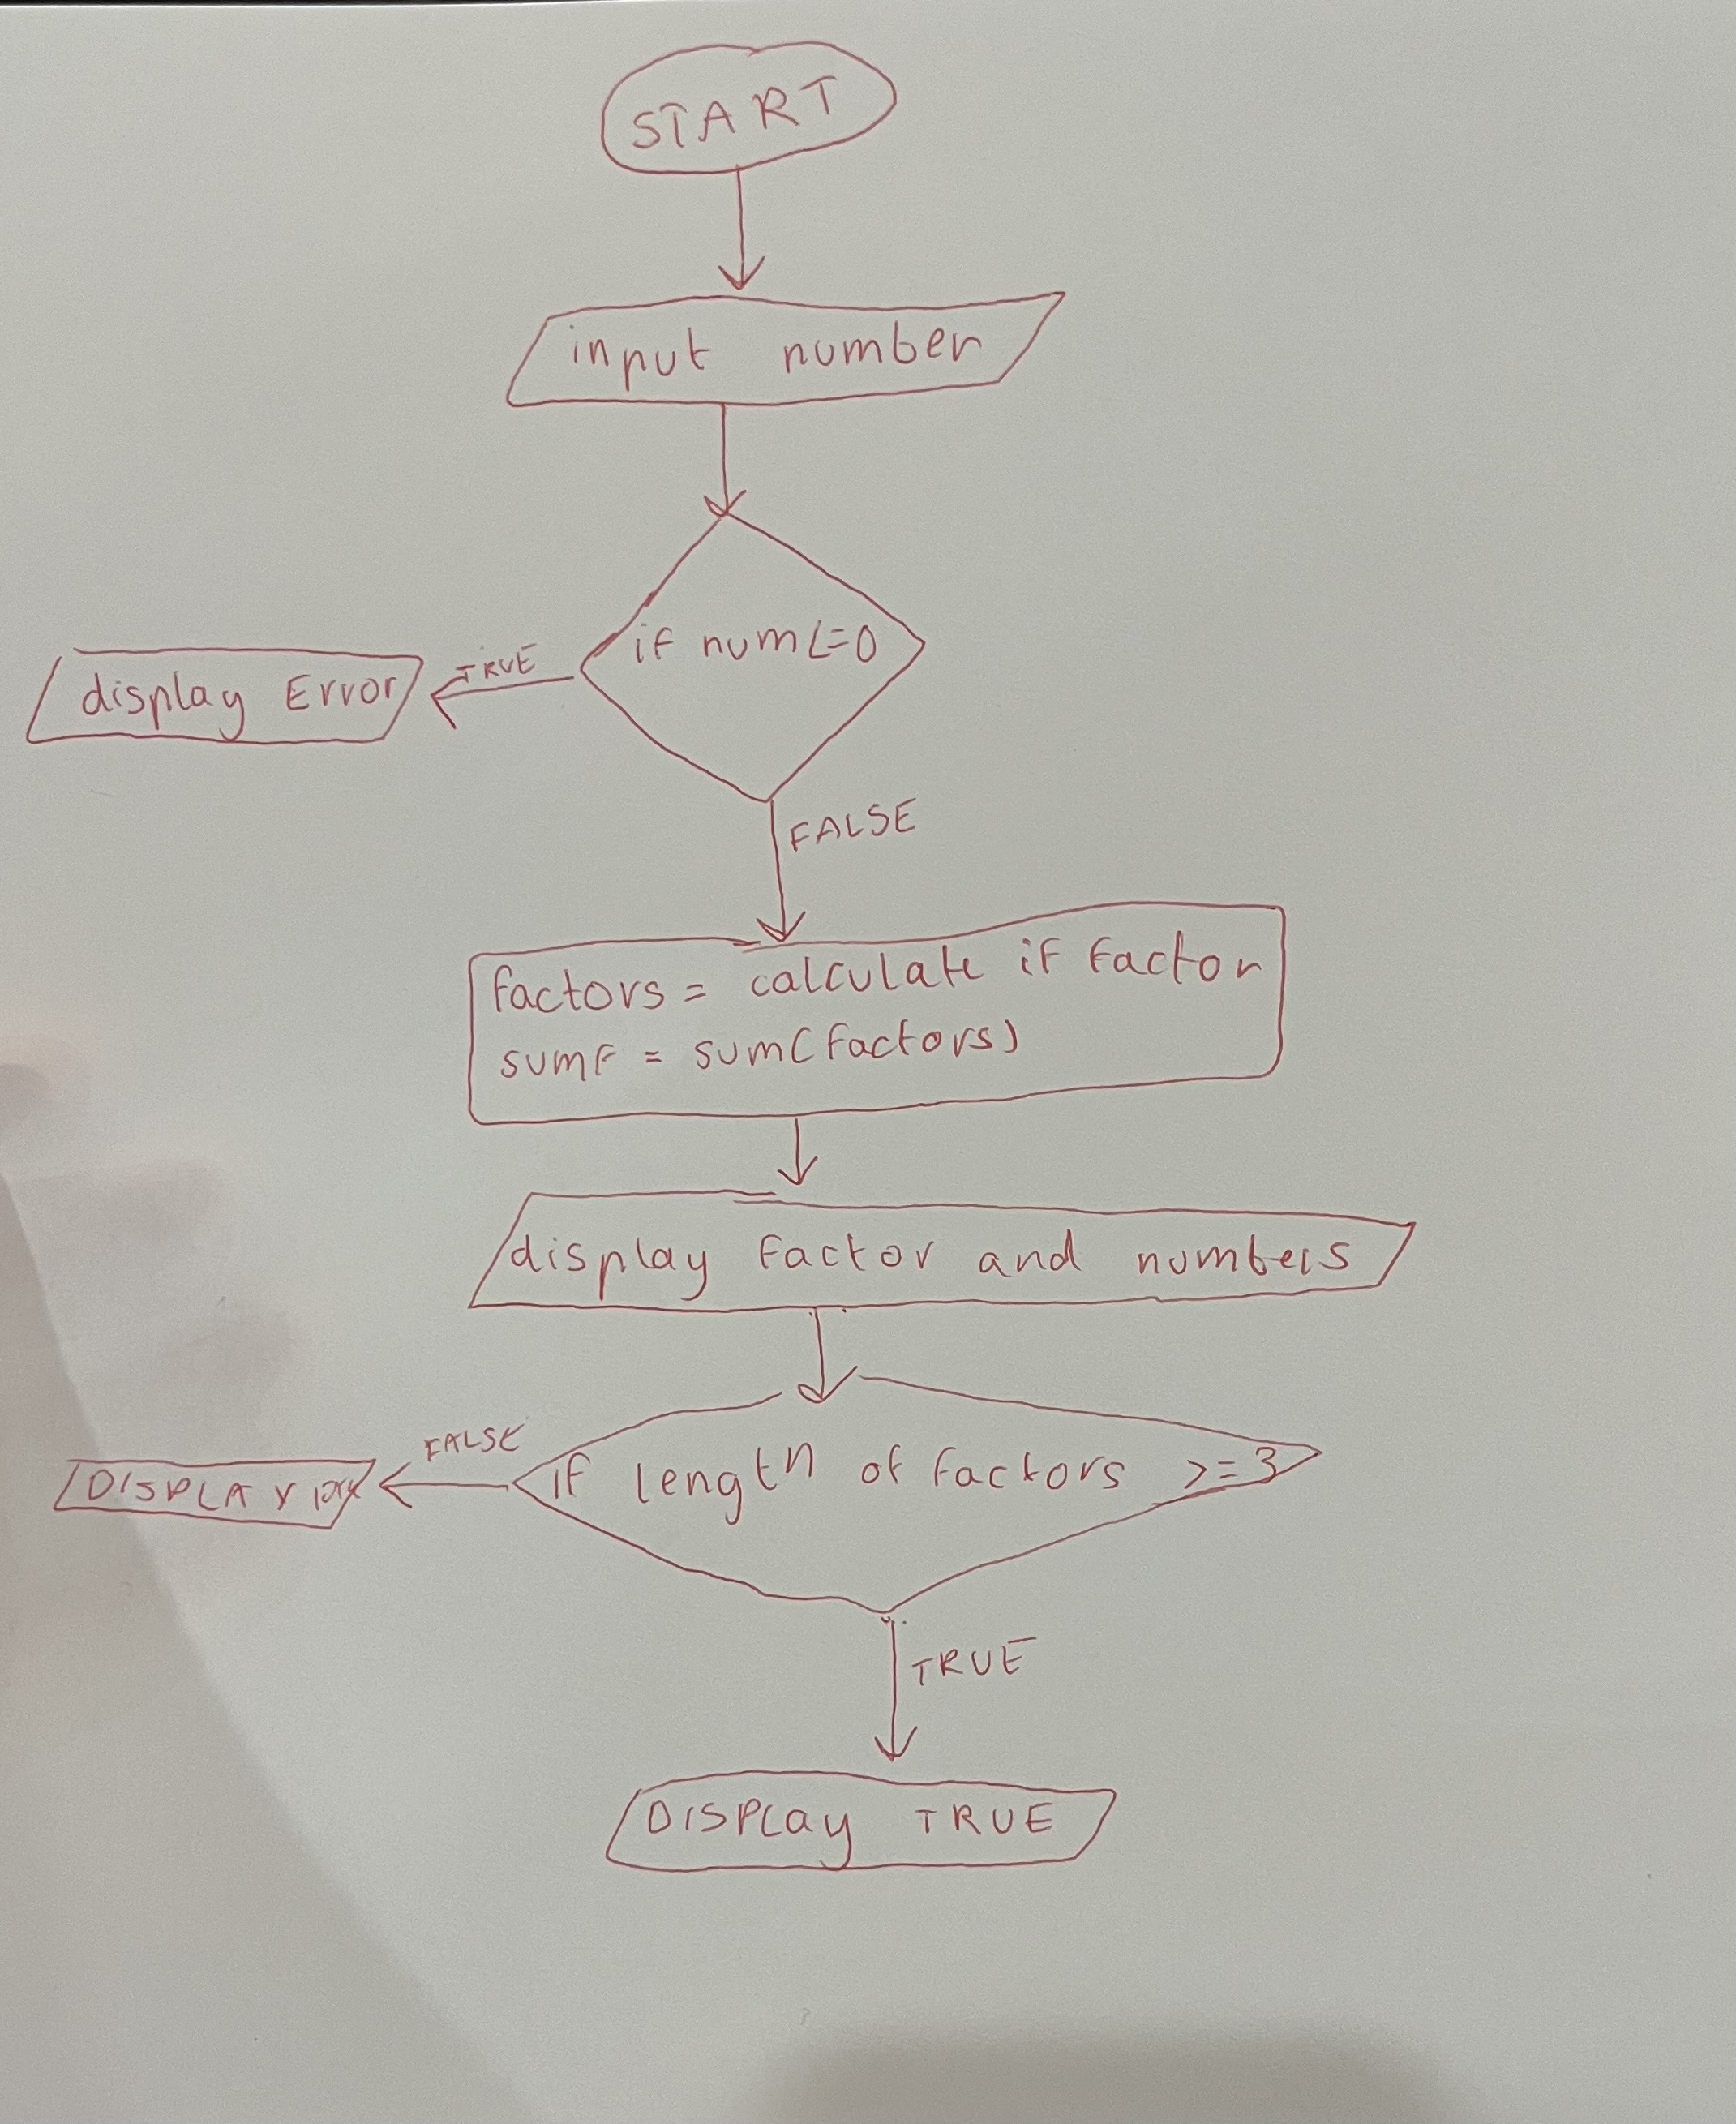 START
input number
if num <=0
TRUE
display Error
FALSE
factors = calculate if factor
sumF = sum(factors)
display factor and numbers
if length of factors >=3
FALSE
DISPLAY
TRUE
DISPLAY TRUE